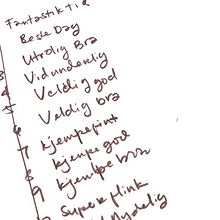 Fantastisk
Beste Day
Utrolig Bra
3 Vidunderlig
4 Veldig god
5 Veldig bra
6 kjempefint
7 kjempe god
8 kjempe bra
9 Super flink